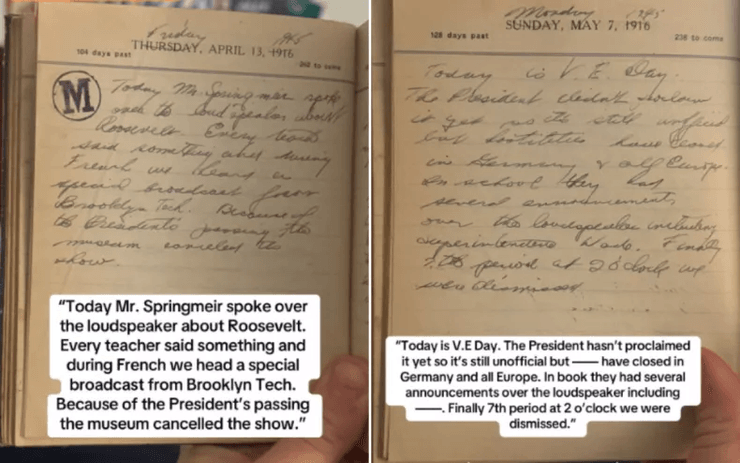 Friday 1945
THURSDAY, APRIL 13, 1916
104 days past
262 to come
M
Today Mr. Springmeir spoke
over the loud speaker about
Roosevelt. Every teacher
said something and during
French we heard a
special broadcast from
Brooklyn Tech. Because of
the President's passing the
museum canceled the
show.
"Today Mr. Springmeir spoke over
the loudspeaker about Roosevelt.
Every teacher said something and
during French we head a special
broadcast from Brooklyn Tech.
Because of the President's passing
the museum cancelled the show."
Monday 1945
SUNDAY, MAY 7, 1916
128 days past
238 to come
Today is V. E. Day.
The President didn't proclaim
it yet so its still unofficial
but hostilities have ceased
in Germany & all Europe.
In school they had
several announcements
over the loudspeaker including
Superintendent Wade. Finally
7th period at 2 o'clock we
were dismissed
"Today is V.E Day. The President hasn't proclaimed
it yet so it's still unofficial but —— have closed in
Germany and all Europe. In book they had several
announcements over the loudspeaker including
——. Finally 7th period at 2 o'clock we were
dismissed."